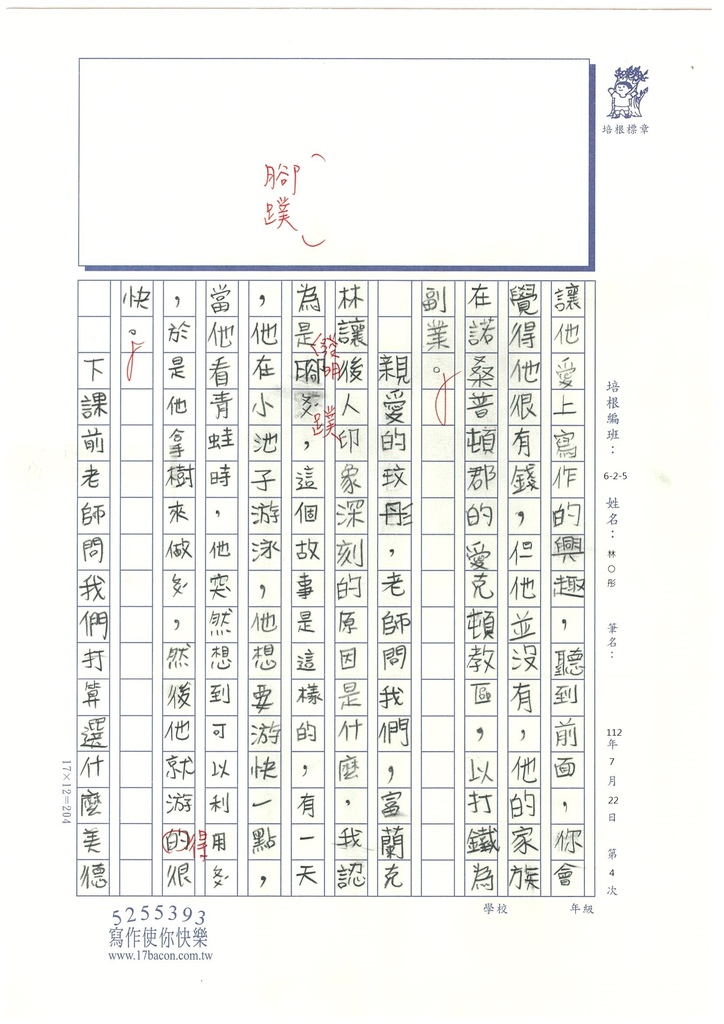 培根標章
腳蹼
培根編班：6-2-5 姓名：林○彤 筆名： 112年7月22日 第4次
讓他愛上寫作的興趣，聽到前面，你會
覺得他很有錢，但他並沒有，他的家族
在諾桑普頓郡的愛克頓教區，以打鐵為
副業。
親愛的玟彤，老師問我們，富蘭克
林讓後人印象深刻的原因是什麼，我認
為是發明腳蹼，這個故事是這樣的，有一天
，他在小池子游泳，他想要游快一點，
當他看青蛙時，他突然想到可以利用
，於是他拿樹來做，然後他就游的得很
快。
下課前老師問我們打算選什麼美德
17×12=204
學校 年級
5255393
寫作使你快樂
www.17bacon.com.tw